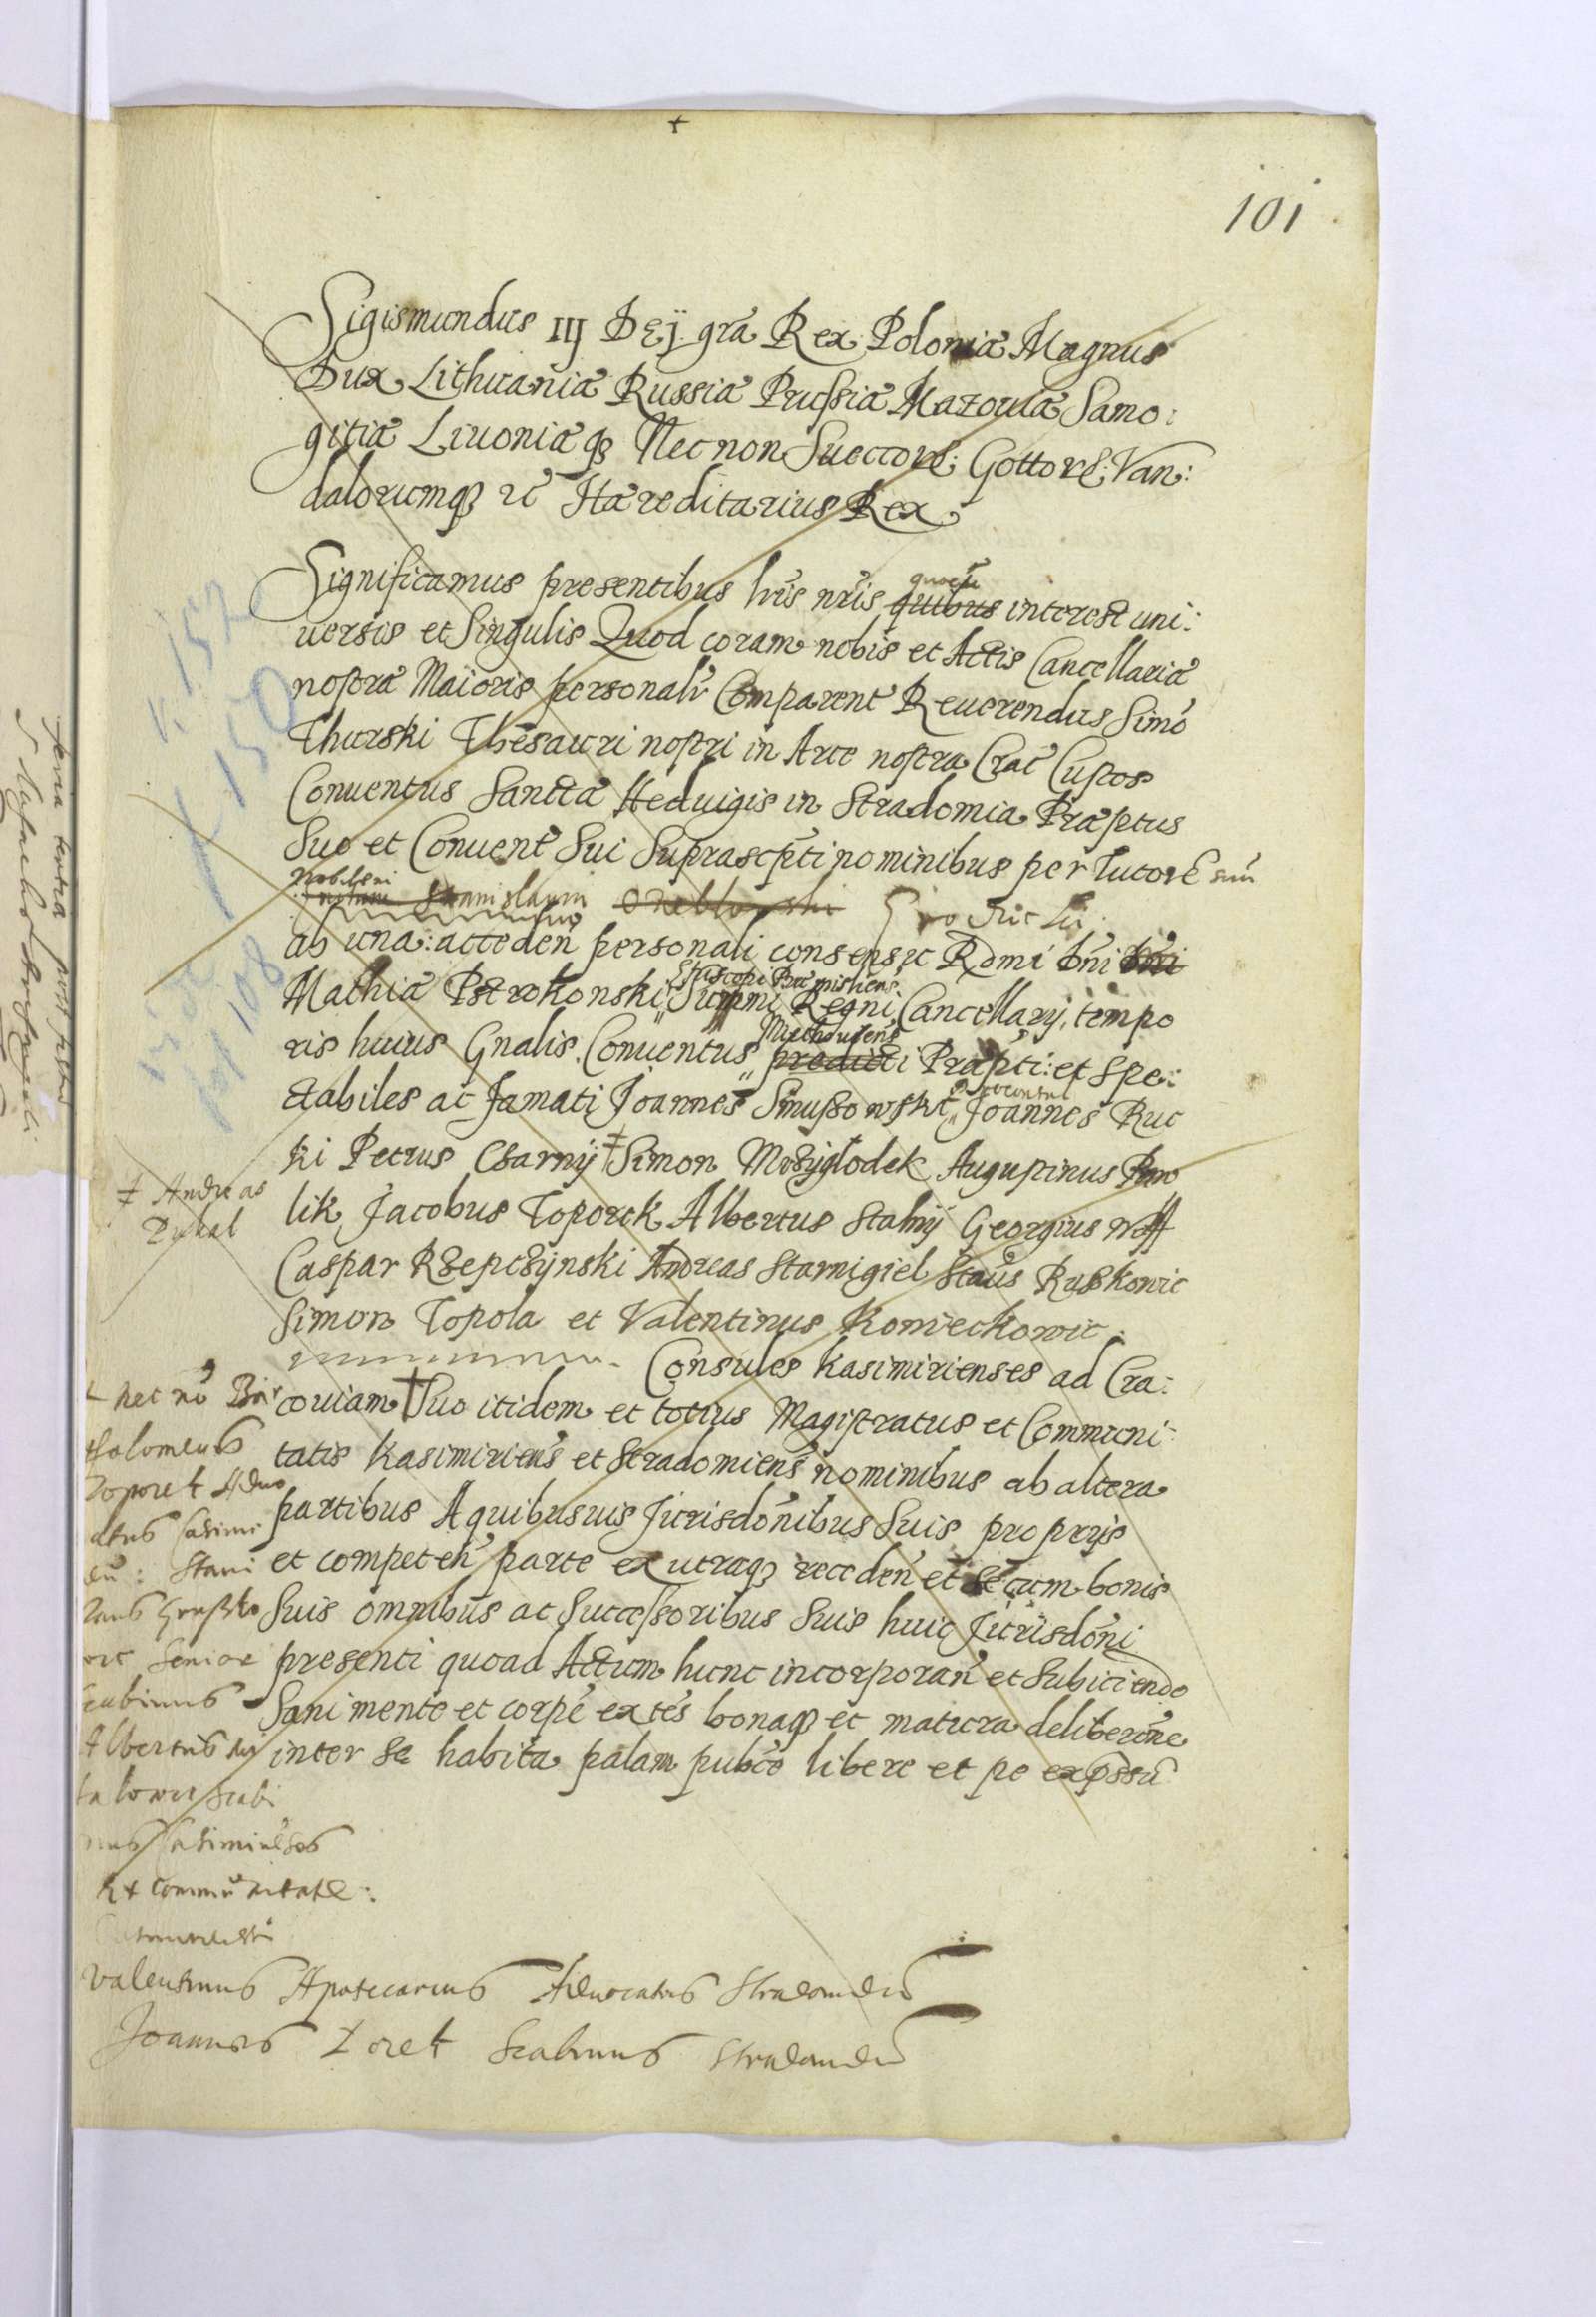 101
Sigismundus III Deÿ grã Rex Poloniæ Magnus
Dux Lithuaniæ Russiæ Prussiæ Mazouiæ Samo:
gitiæ Liuoniæq3 Necnon Sueccorũ: Gottorũ: Van:
dalorumq3 zc̃ Hæreditarius Rex
Significamus presentibus lr̃is nr̃is quibus interest uni:
uersis et Singulis Quod coram nobis et Actis Cancellariæ
nostræ Maioris personalr̃ Comparent̃ Reuerendus Simõ
Thurski Thesauri nostri in Arce nostra Crac̃ Custos
Conuentus Sanctæ Heduigis in Stradomia Præp̃tus
Suo et Conuent̃ Sui Suprascp̃ti nominibus per Tutorẽ suũ
Nobilem
Stanislaum
ab una: acceden̄ personali consensu Rd̃mi Dñi Dñi
Episcopi Præmislien̄s
Mathiæ Pstrokonski Summi Regni Cancellarÿ, tempo
Miechouien̄s
ris huius Gñalis Conuentus predicti Præp̃ti: et Spe:
ctabiles ac famati Joannes Smuszowski Joannes Ruc
ki Petrus Czarnÿ ‡ Simon Mrzÿglodek Augustinus Paw
‡ Andreas
lik Jacobus Toporek Albertus Stalnÿ Georgius Wolff
Caspar Rzepczÿnski Andreas Starnigiel Staũs Ruszkowic
Simon Topola et Valentinus Konieckowic.
Consules Kasimirienses ad Cra:
couiam † Suo itidem et totius Magistratus et Communi:
tatis Kasimirien̄s et Stradomien̄s nominibus ab altera
partibus A quibusuis Jurisdõnibus Suis proprÿs
et competeñ parte ex utraq3 receden̄ et Se cum bonis
Suis omnibus ac Successoribus Suis huic Jurisdõni
presenti quoad Actum hunc incorporan̄ et Subiiciendo
Sani mente et corpẽ extẽs bonaq3 et matura deliberõne
inter Se habita palam pubc̃e libere et pe exp̃ssũ
nec nõ Bar
tholomeus
Toporek Aduo
catus Casimi
Stani
senior
Scabinus
Albertus
Et communitate:
Valentinus Apotecarius Aduocatus Stradomien̄
Joannes Zorek Scabinus Stradomien̄